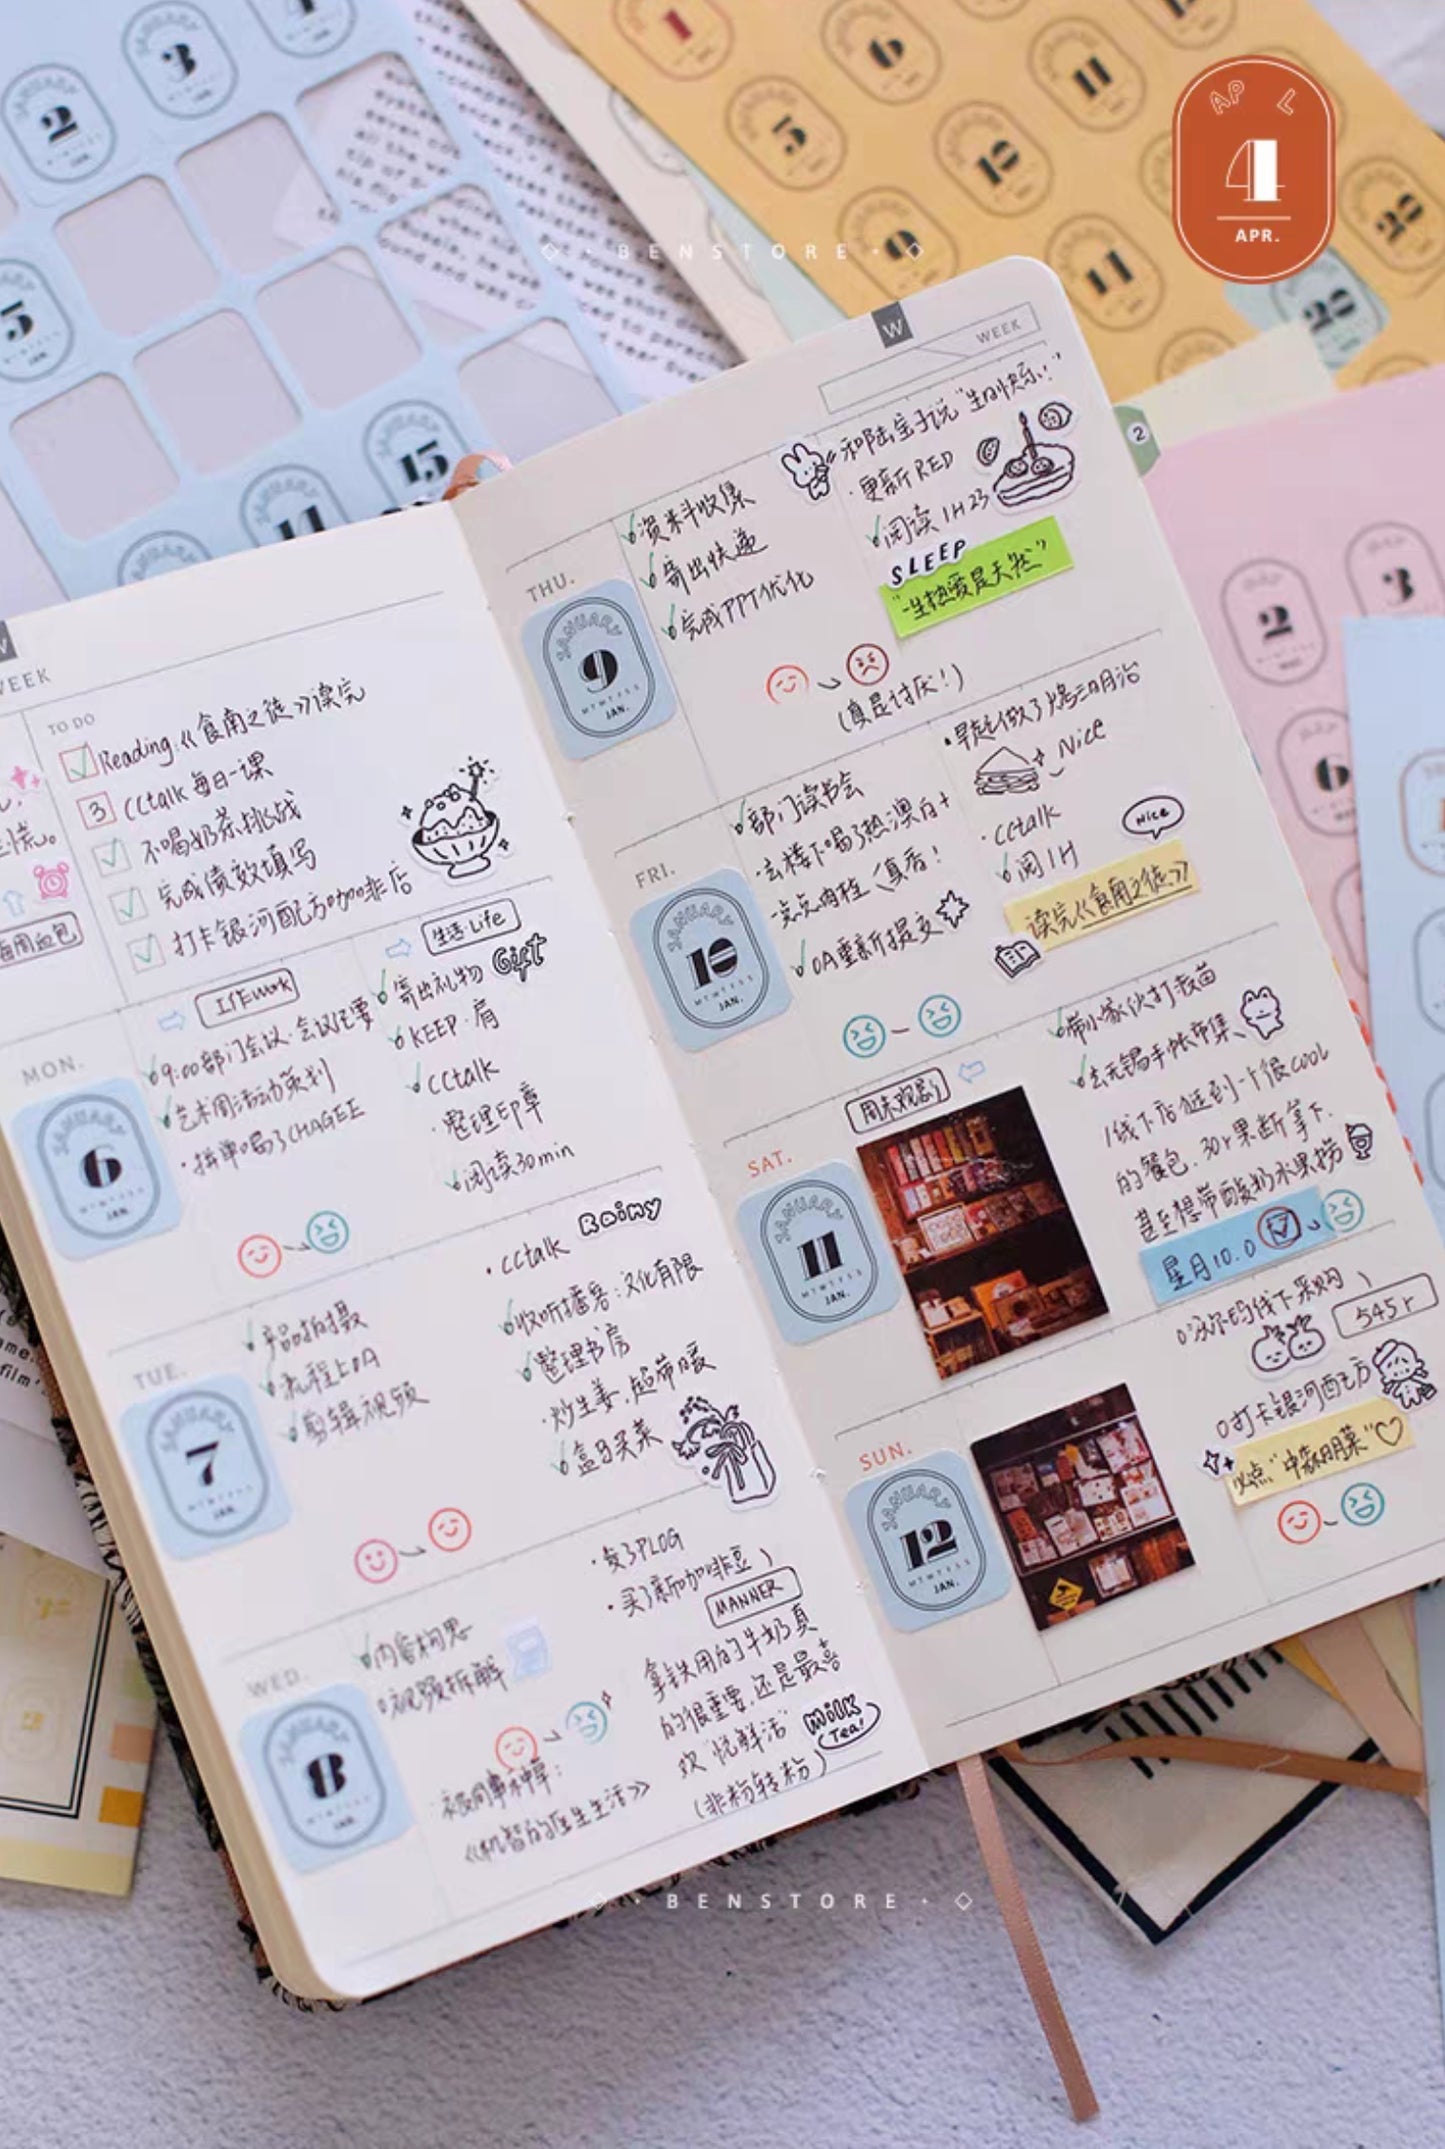 APR.
4
APR.
BENSTORE
WEEK
TO DO
Reading:《食南之徒》读完
3 CCtalk 每日一课
不喝奶茶挑战
完成绩效填写
打卡银河配方咖啡店
工作work
9:00部门会议·会议纪要
艺术周活动策划
·拼单喝了CHAGEE
生活·Life
寄出礼物 Gift
KEEP·肩
CCtalk
·整理印章
阅读30min
MON.
JANUARY
6
JAN.
·CCtalk Rainy
收听播客:文化有限
整理书房
·炒生姜,超带暖
盒马买菜
产品拍摄
流程上OA
剪辑视频
TUE.
JANUARY
7
JAN.
·发了PLOG
·买了新咖啡豆
MANNER
拿铁用的牛奶真
的很重要,还是最喜
欢"悦鲜活"
milk Tea!
(非粉转粉)
内容构思
视频拆解
·被同事种草:
《机智的医生生活》
WED.
JANUARY
8
JAN.
W
WEEK
THU.
JANUARY
9
JAN.
资料收集
寄出快递
完成PPT优化
和陆宝子说"生日快乐!"
·更新RED
阅读1H23
SLEEP
"一生热爱是天然"
(真是讨厌!)
FRI.
JANUARY
10
JAN.
部门读书会
·去楼下喝了热澳白+
OA重新提交
·早起做了爆三明治
Nice
·CCtalk
阅1H
Nice
读完《食南之徒》
SAT.
JANUARY
11
JAN.
周末观影
带小家伙打疫苗
去无锡手帐市集
线下店逛到一个很COOL
的餐包,30r果断拿下.
甚至想带酸奶水果捞
星月10.0
SUN.
JANUARY
12
JAN.
沃尔玛线下采购
545r
打卡银河配方
必点"中森明菜"
BENSTORE